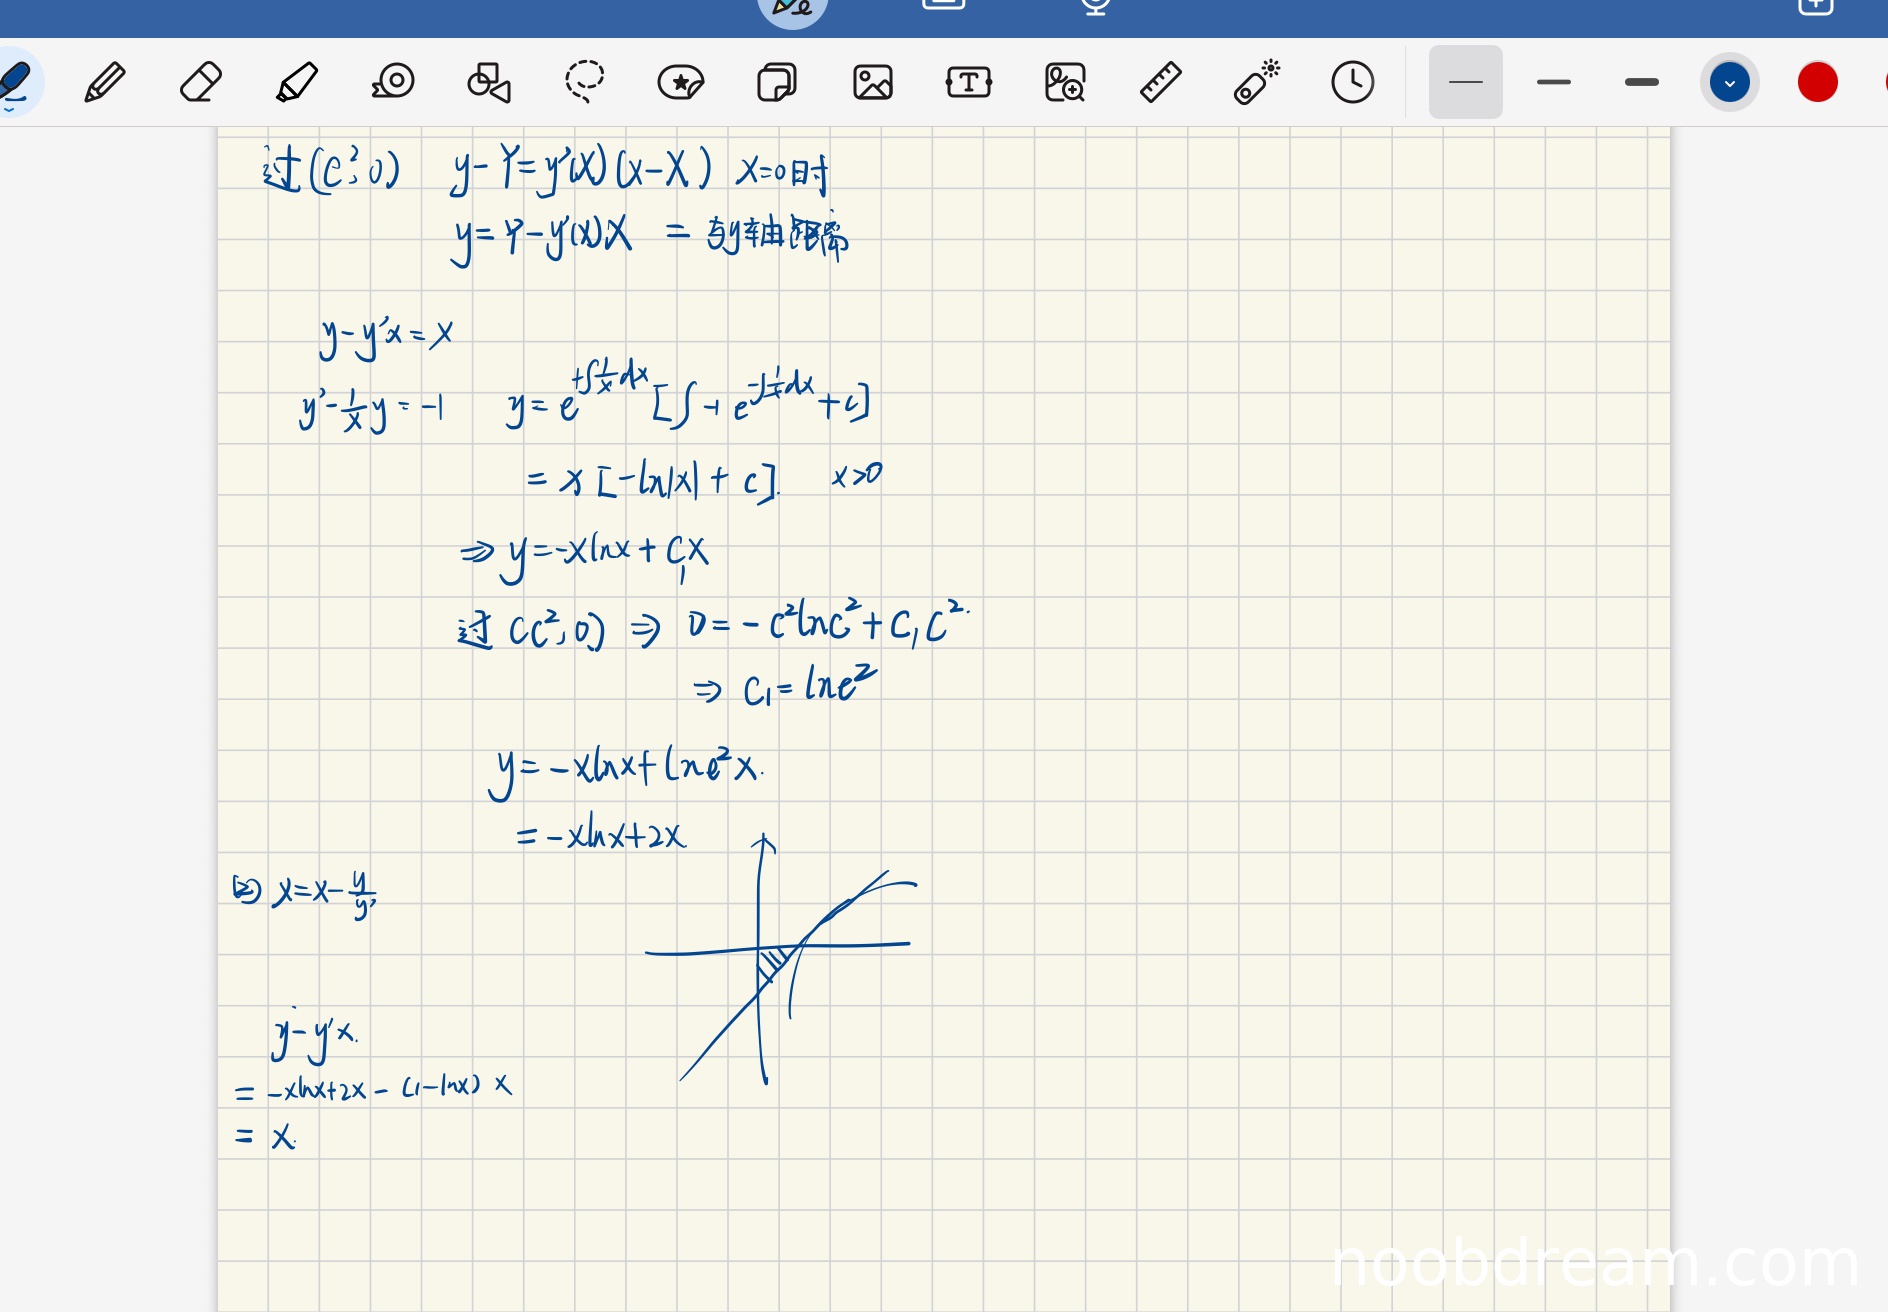 过(e²,0) y-Y=y'(X)(x-X) x=0时
y=Y-y'(X)X = 与y轴距离
y-y'x=x
y'-1/x y=-1 y=e^{+∫1/x dx}[∫-1 e^{-∫1/x dx}+c]
=x[-ln|x|+c]. x>0
⇒y=-xlnx+C₁x
过(c²,0) ⇒ 0=-c²lnc²+C₁C².
⇒ C₁=lne²
y=-xlnx+lne²x.
=-xlnx+2x
(2) x=x-y/y'
y-y'x.
= -xlnx+2x-(1-lnx) x
= x.
noobdream.com